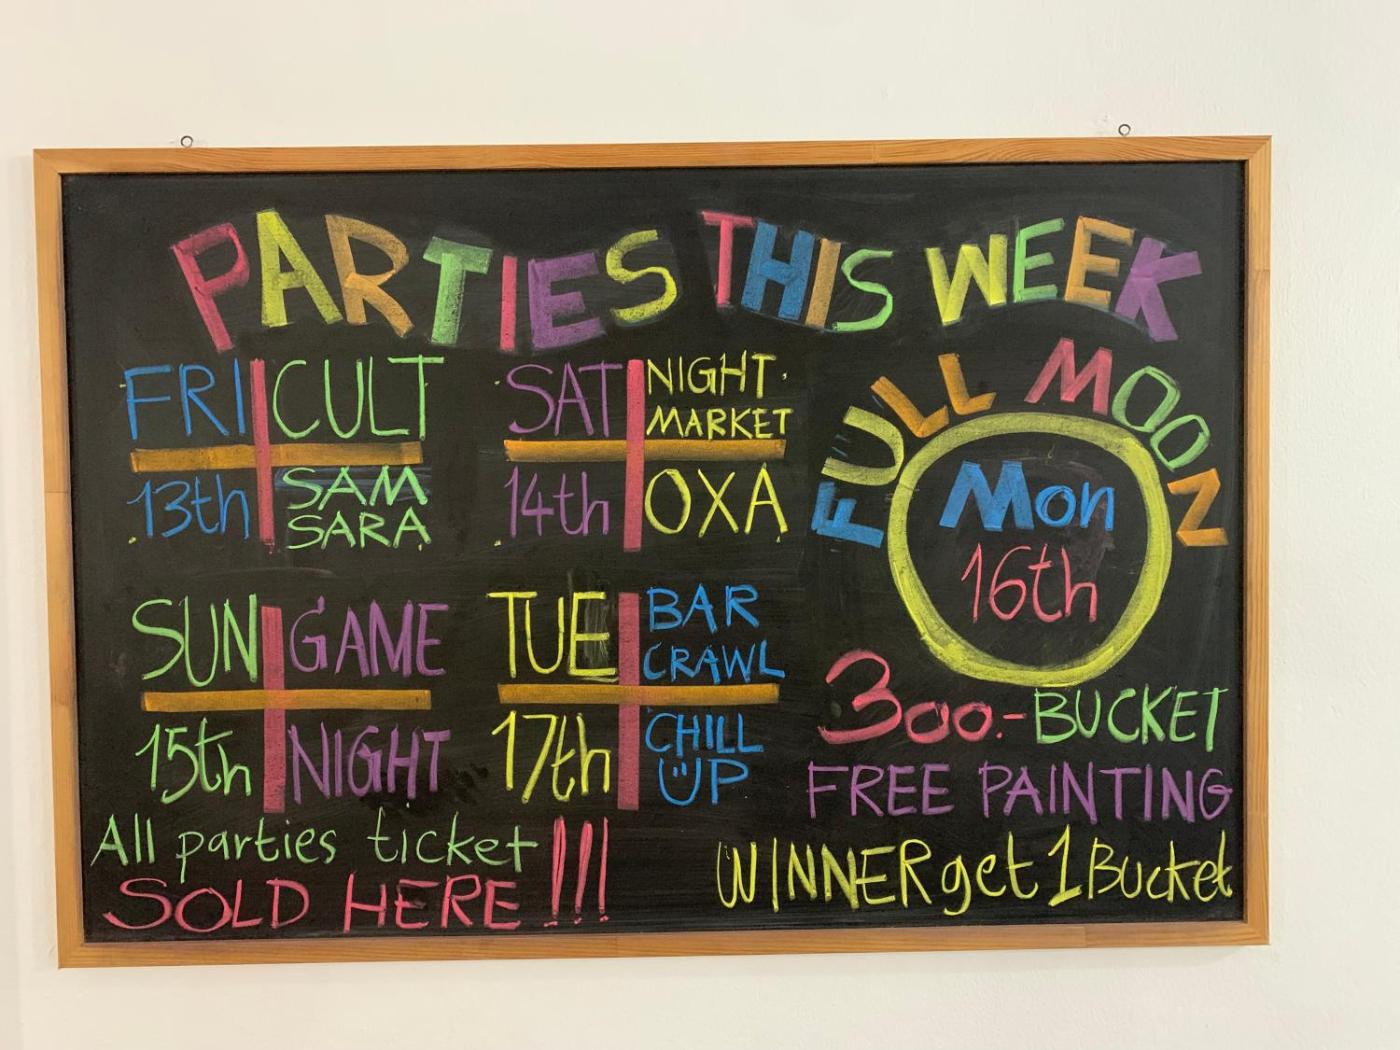 PARTIES THIS WEEK
FRI CULT
13th SAM
SARA
SAT NIGHT
MARKET
14th OXA
FULL MOON
Mon
16th
SUN GAME
15th NIGHT
TUE BAR
CRAWL
17th CHILL
ÜP
300.- BUCKET
FREE PAINTING
WINNER get 1 Bucket
All parties ticket
SOLD HERE !!!